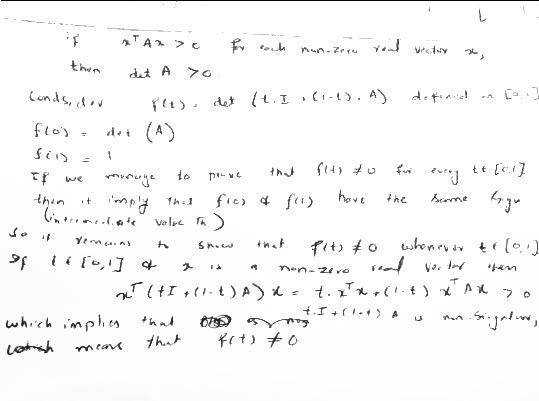 if xᵀAx > 0 for each non-zero real vector x,
then det A > 0
Consider f(t) = det (t.I + (1-t).A) defined on [0,1]
f(0) = det (A)
f(1) = 1
If we manage to prove that f(t) ≠ 0 for every t ∈ [0,1]
then it imply that f(0) & f(1) have the same sign
(intermediate value Th)
So it remains to show that f(t) ≠ 0 whenever t ∈ [0,1]
If t ∈ [0,1] & x is a non-zero real vector then
xᵀ(tI + (1-t)A)x = t.xᵀx + (1-t) xᵀAx > 0
which implies that t.I + (1-t) A is non-singular,
means that f(t) ≠ 0